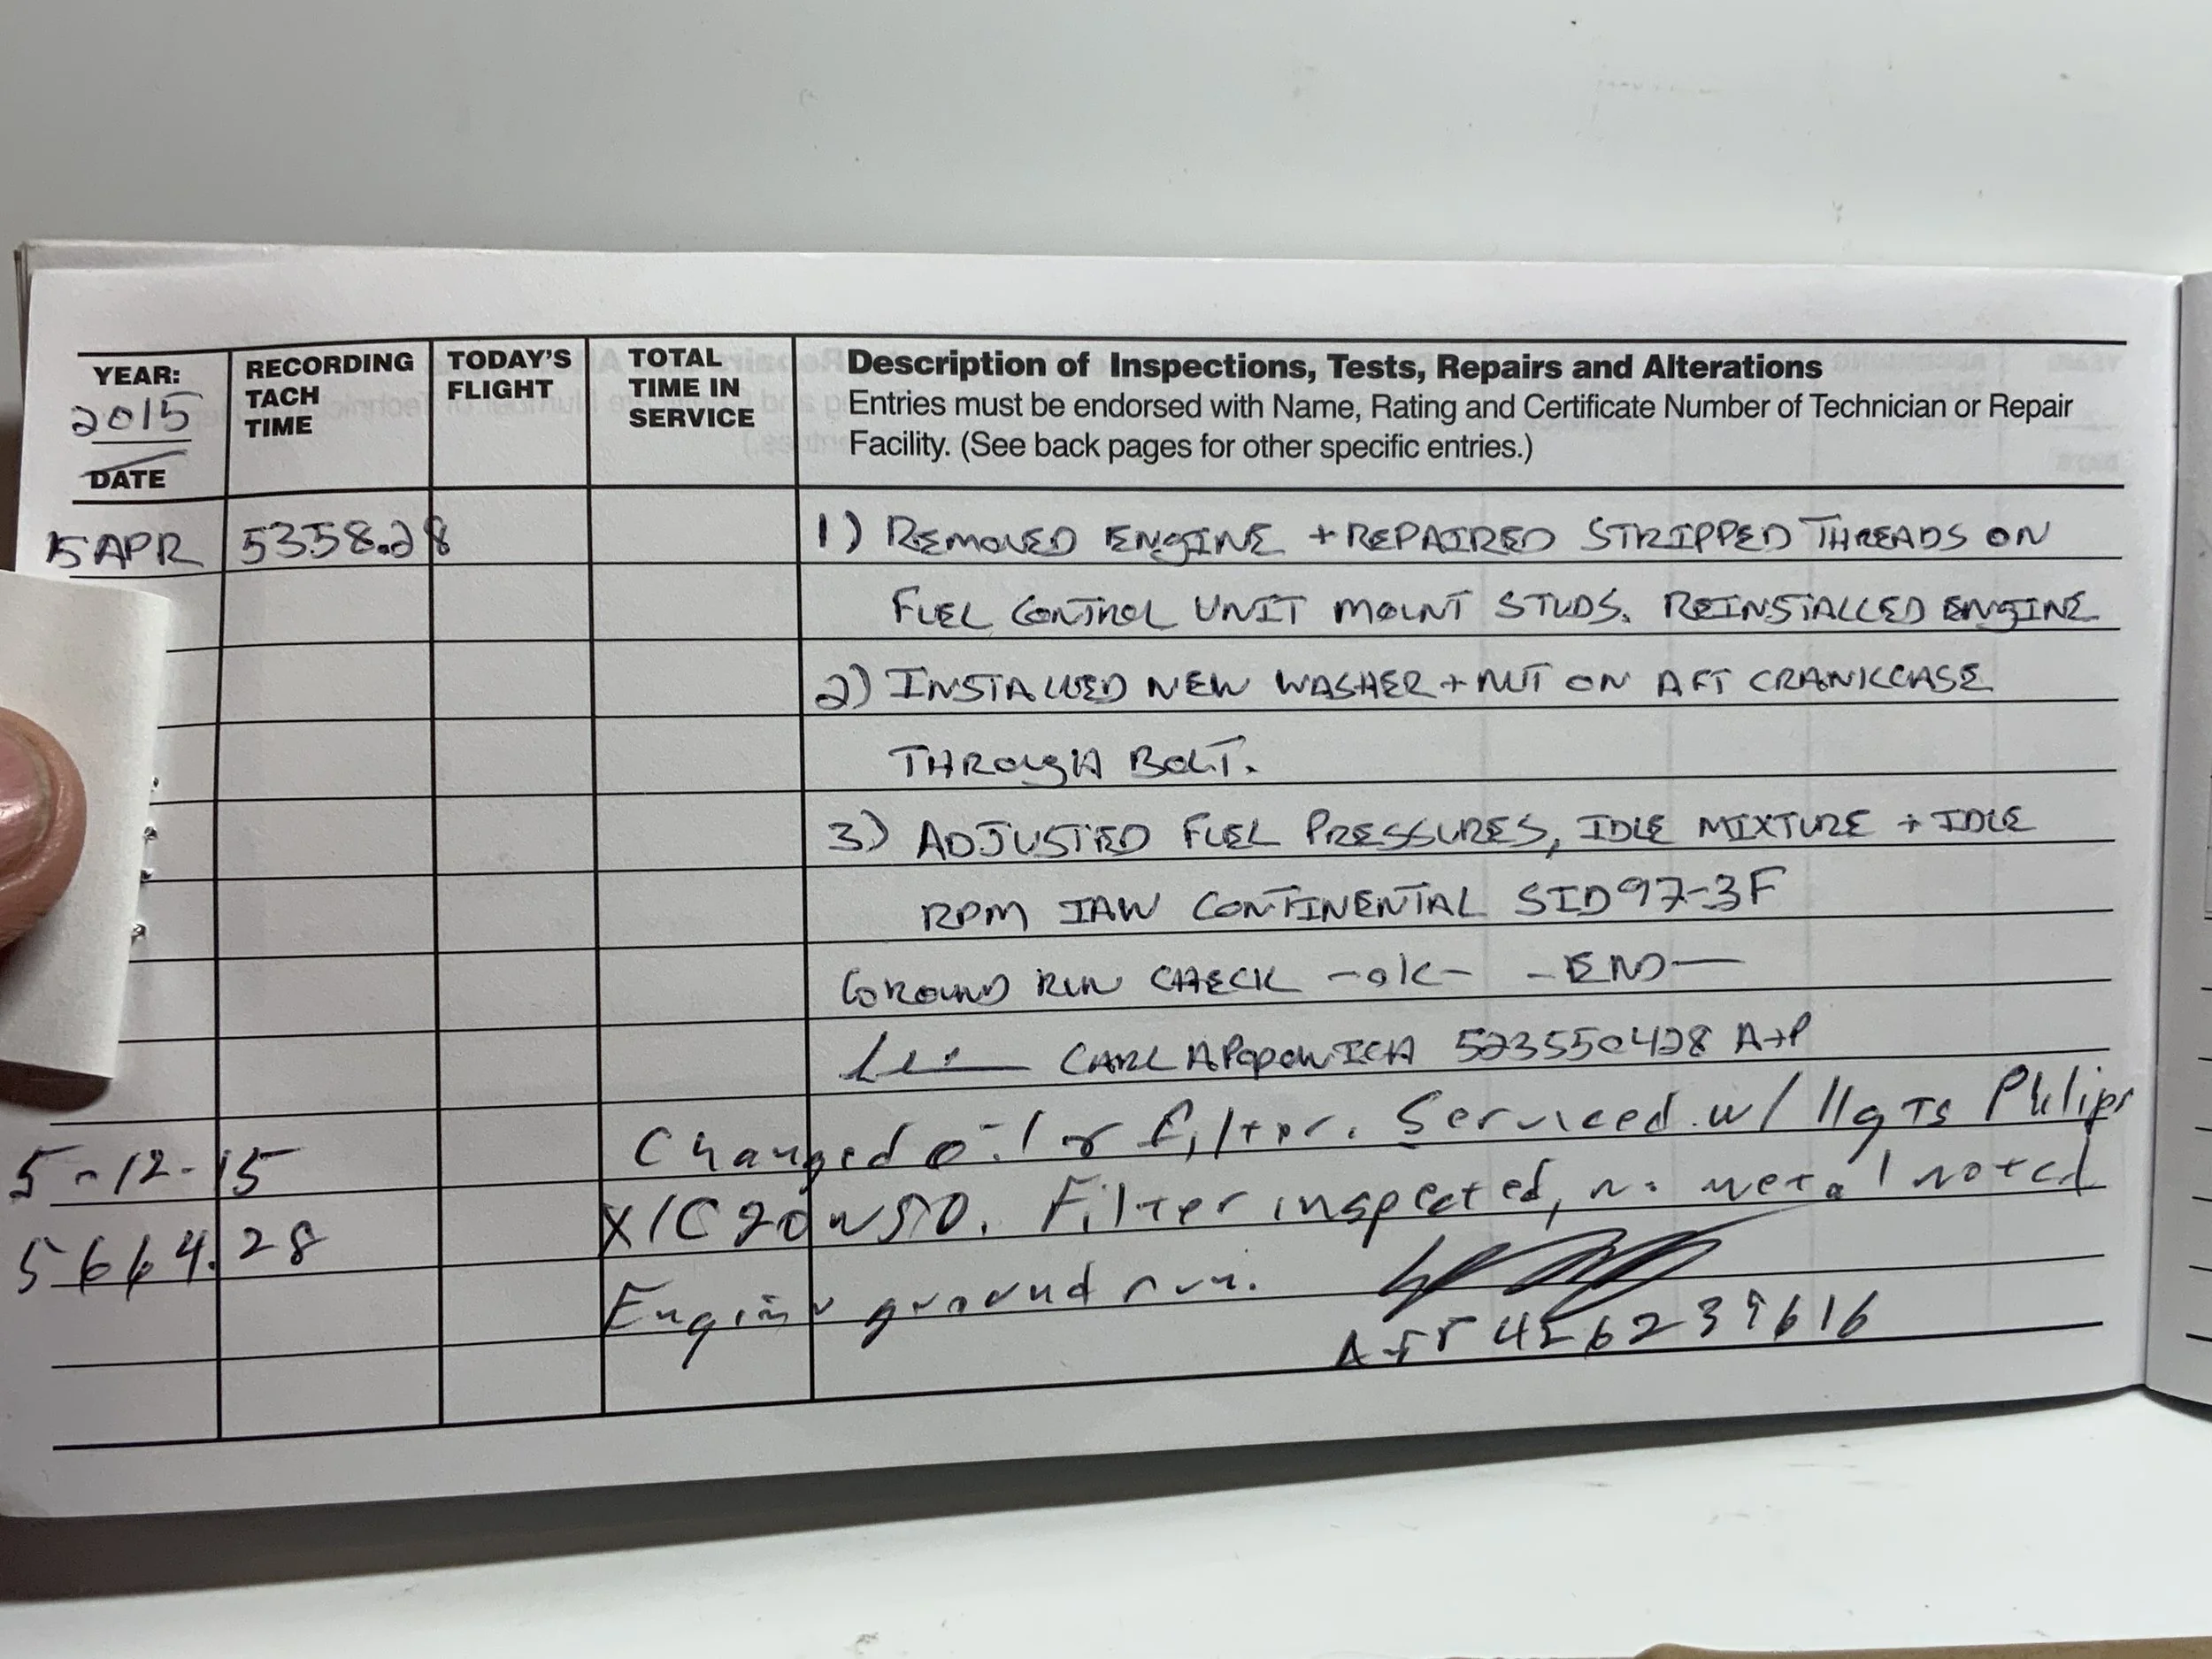 YEAR: 2015 DATE
RECORDING TACH TIME
TODAY'S FLIGHT
TOTAL TIME IN SERVICE
Description of Inspections, Tests, Repairs and Alterations
Entries must be endorsed with Name, Rating and Certificate Number of Technician or Repair
Facility. (See back pages for other specific entries.)
15 APR 5358.28 1) REMOVED ENGINE + REPAIRED STRIPPED THREADS ON
FUEL CONTROL UNIT MOUNT STUDS. REINSTALLED ENGINE
2) INSTALLED NEW WASHER + NUT ON AFT CRANKCASE
THROUGH BOLT.
3) ADJUSTED FUEL PRESSURES, IDLE MIXTURE + IDLE
RPM IAW CONTINENTAL SID97-3F
GROUND RUN CHECK -OK- -END-
CARL A POPOWICH 523550428 A+P
5-12-15 Changed oil & filter. Serviced w/ 11qts Philips
5664.28 X/C 20W50. Filter inspected, no metal noted
Engine ground run.
A+P 456239616